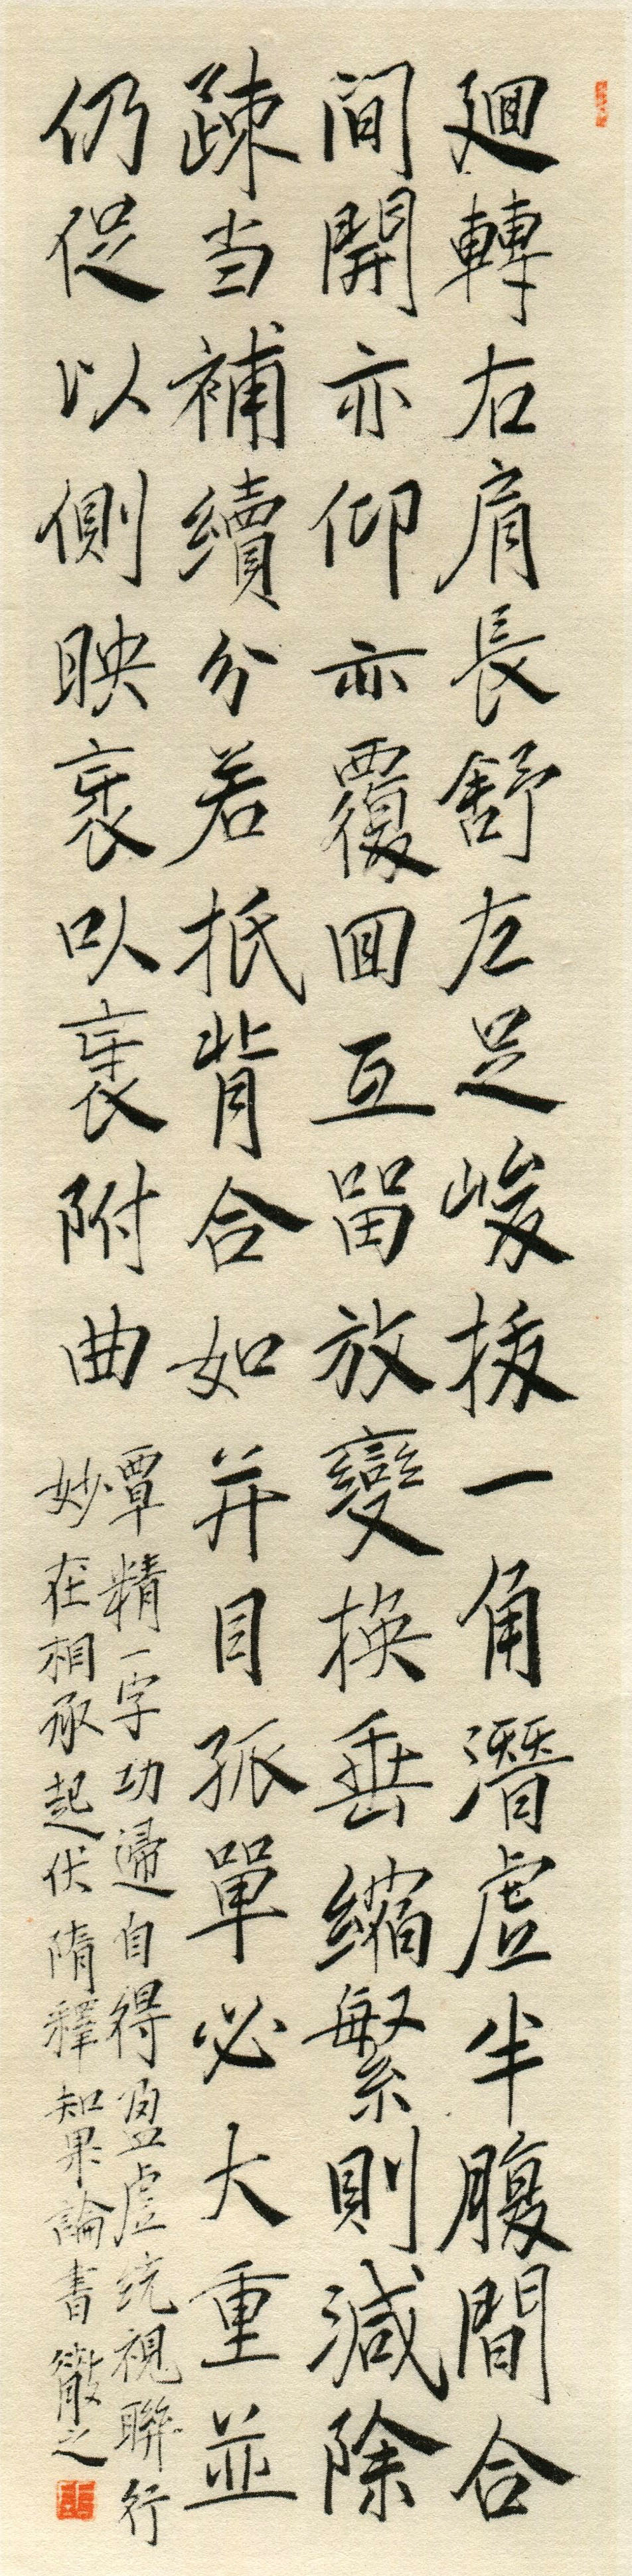 廻轉右肩長舒左足峻拔一角潛虛半腹間合
間開亦仰亦覆回互留放變換垂縮繁則減除
疎当補續分若抵背合如并目孤單必大重並
仍促以側映裹以裹附曲
覃精一字功歸自得盈虛统視聯行
妙在相承起伏隋釋知果論書徽之